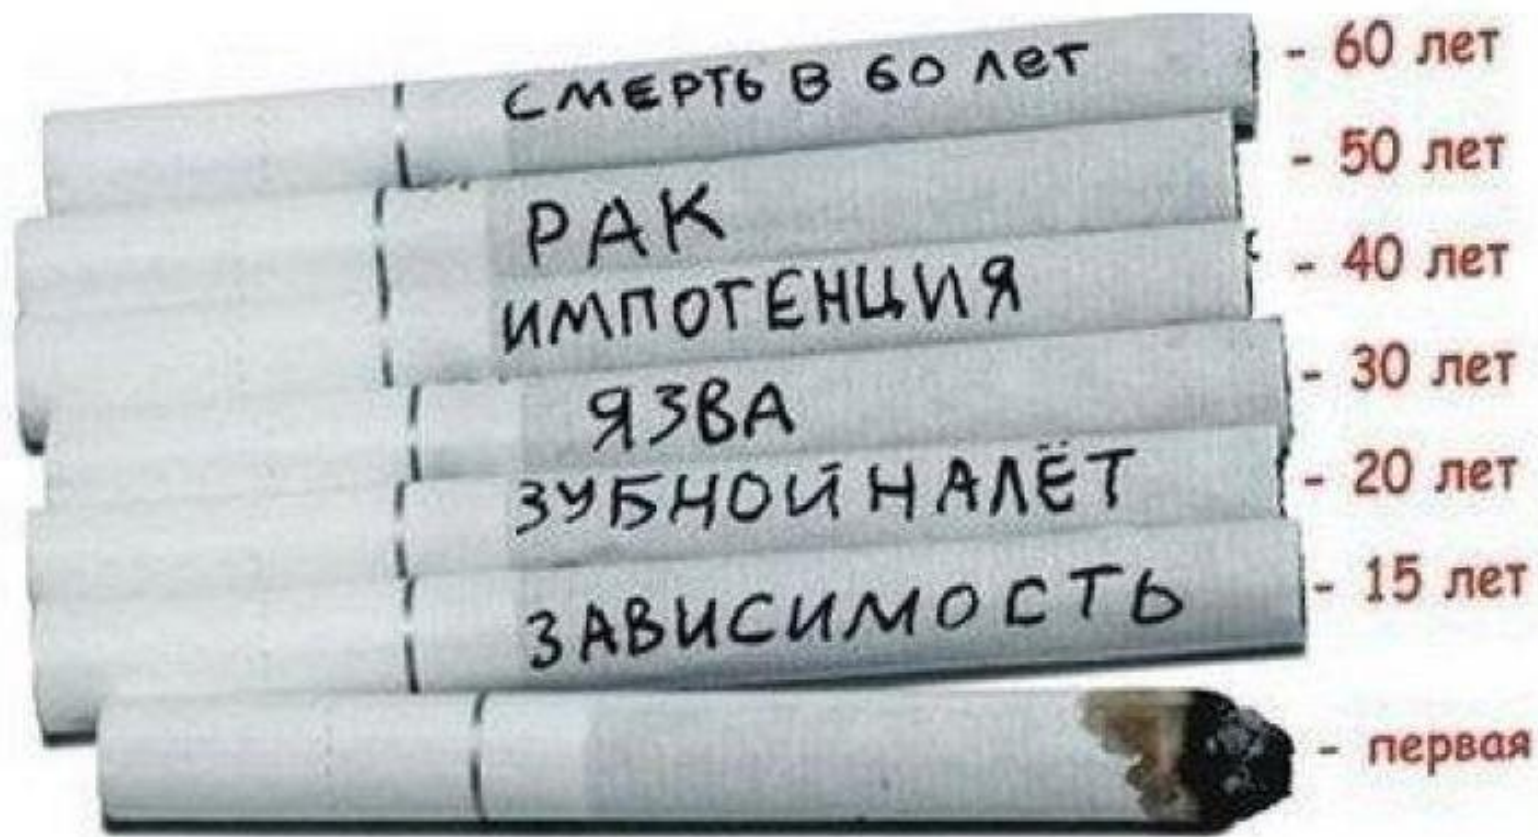 СМЕРТЬ В 60 лет - 60 лет
РАК - 50 лет
ИМПОТЕНЦИЯ - 40 лет
ЯЗВА - 30 лет
ЗУБНОЙ НАЛЁТ - 20 лет
ЗАВИСИМОСТЬ - 15 лет
- первая